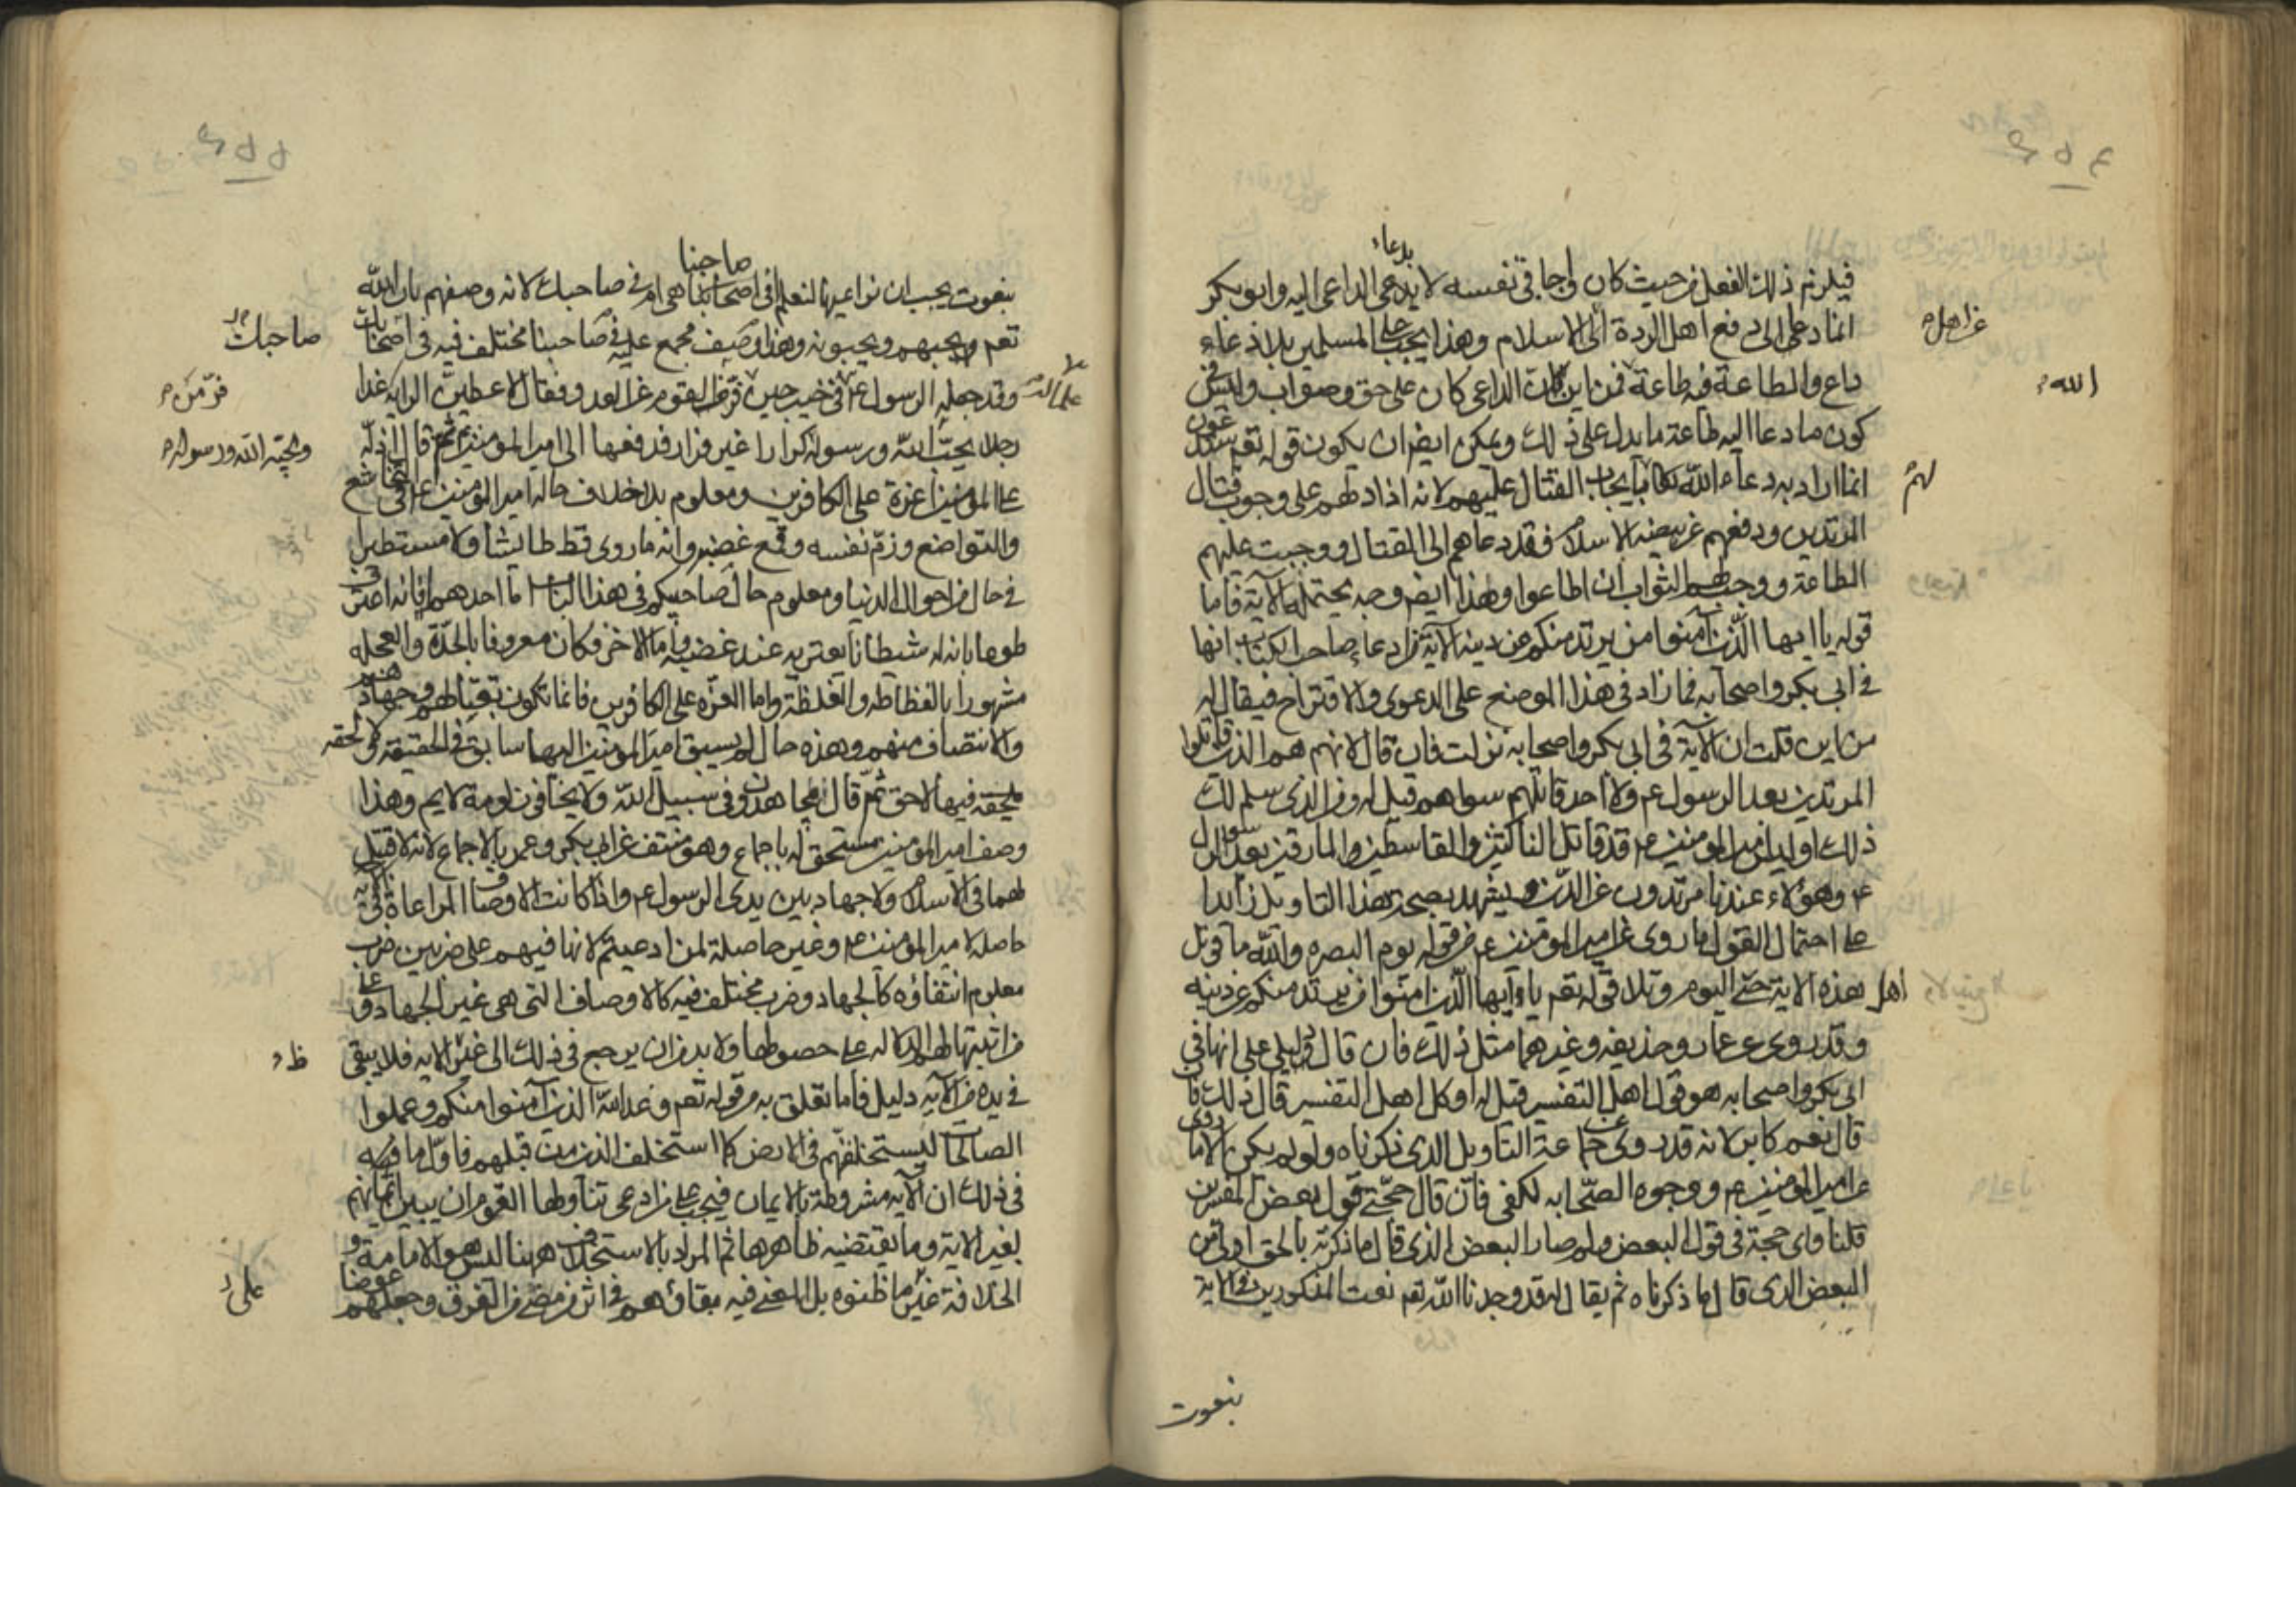 فيلزم ذلك الفعل من حيث كان واجبا في نفسه لا بدعاء الداعي اليه وابو بكر
انما دعى الى دفع اهل الردة الى الاسلام وهذا يجب على المسلمين بلا دعاء
عن اهل
داع والطاعة فيه طاعة فمن اين لك ان الداعي كان على حق وصواب وليس في
الله
كون ما دعا اليه طاعة ما يدل على ذلك ويمكن ايضا ان يكون قوله تعم ستدعون
انما اراد به دعاء الله بايجاب القتال عليهم لانه اذا دلهم على وجوب قتال
لهم
المرتدين ودفعهم عن بيضه الاسلام فقد دعاهم الى القتال ووجبت عليهم
الطاعة ووجب لهم الثواب ان اطاعوا وهذا ايضا وجه يحتمله الآية فاما
قوله يا ايها الذين آمنوا من يرتد منكم عن دينه الآية وادعاء صاحب الكتاب انها
في ابي بكر واصحابه فما زاد في هذا الموضع على الدعوى والاقتراح فيقال له
من اين قلت ان الآية في ابي بكر واصحابه نزلت فان قال لانهم هم الذين قاتلوا
المرتدين بعد الرسول عم ولا احد قاتلهم سواهم قيل له ومن الذي سلم لك
ذلك اوليس امير المومنين عم قد قاتل الناكثين والقاسطين والمارقين بعد الرسول
عم وهؤلاء عندنا مرتدون عن الدين ويشهد بصحة هذا التاويل زايدا
على احتمال القول ما روى عن امير المومنين عم من قوله يوم البصره والله ما قوتل
اهل هذه الاية حتى اليوم وتلا قوله تعم يا ايها الذين امنوا من يرتد منكم عن دينه
وقد روى عن عمار وحذيفه وغيرهما مثل ذلك فان قال دليلي على انها في
ابي بكر واصحابه هو قول اهل التفسير قيل له اوكل اهل التفسير قال ذلك فان
قال نعم كابر لانه قد روى عن جماعة التاويل الذي ذكرناه ولو لم يكن الا ما روى
عن امير المومنين عم ووجوه الصحابه لكفى فان قال حجتي قول بعض المفسرين
قلنا واي حجة في قول البعض ولم صار البعض الذي قال ما ذكرته بالحق اولى من
البعض الذي قال ما ذكرناه ثم يقال له قد وجدنا الله تعم نعت المذكورين في الاية
بنعوت
بنعوت يجب ان نراعيها لنعلم افي صاحبنا هي ام في صاحبك لانه وصفهم بان الله
تعم يحبهم ويحبونه وهذا وصف مجمع عليه في صاحبنا مختلف فيه في
صاحبك
وقد جعله الرسول عم في خيبر حين فر من فر من القوم عن العدو فقال لاعطين الراية غدا
علما له
فر من
رجلا يحب الله ورسوله كرارا غير فرار فدفعها الى امير المومنين ثم قال اذلة
ويحبه الله ورسوله
على المومنين اعزة على الكافرين ومعلوم بلا خلاف حاله امير المومنين عم في التخاشع
والتواضع وذم نفسه وقمع غضبه وانه ما روى قط طايشا ولا مستطيرا
في حال من احوال الدنيا ومعلوم حال صاحبيكم في هذا الباب اما احدهما فانه اعترف
طوعا بانه له شيطانا يعتريه عند غضبه واما الاخر فكان معروفا بالحدة والعجله
مشهورا بالفظاظه والغلظة واما العزة على الكافرين فانما تكون بقتالهم وجهادهم
والانتصاف منهم وهذه حال لم يسبق امير المومنين اليها سابق في الحقيقة ولا لحقه
فيها لاحق ثم قال يجاهدون في سبيل الله ولا يخافون لومة لايم وهذا
وصف امير المومنين مستحق له باجماع وهو منتف عن ابي بكر وعمر بالاجماع لانه لا قتيل
لهما في الاسلام ولا جهاد بين يدى الرسول عم واذا كانت الاوصاف المراعاة في الآية
حاصله لامير المومنين عم وغير حاصلة لمن ادعيتم لانها فيهم على ضربين ضرب
معلوم انتفاؤه كالجهاد وضرب مختلف فيه كالاوصاف التي هي غير الجهاد وعلى
من اثبتها لهم الدلاله على حصولها ولا بد من ان يرجع في ذلك الى غير الايه فلا يبقى
في يده من الآيه دليل فاما تعلقه به من قوله تعم وعد الله الذين آمنوا منكم وعملوا
الصالحات ليستخلفنهم في الارض كما استخلف الذين من قبلهم فاول ما فيه
في ذلك ان الآيه مشروطة بالايمان فيجب على من ادعى تناولها القوم ان يبين ايمانهم
بغير الاية وما يقتضيه ظاهرها ثم المراد بالاستخلاف ههنا ليس هو الامامة و
الخلافة على ما ظنوه بل المعنى فيه بقاؤهم في اثر من مضى من القرون وجعلهم عوضا